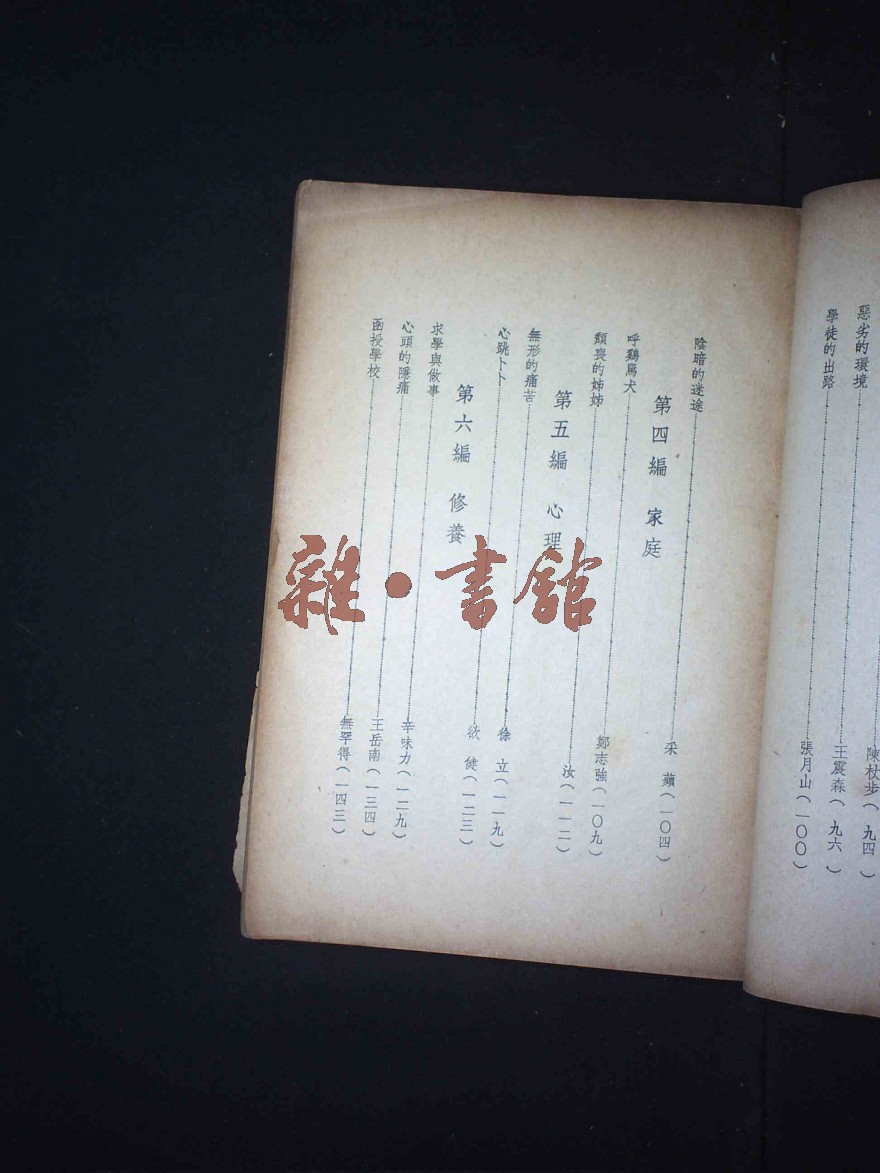 陳杖步（九四）
惡劣的環境……王震森（九六）
學徒的出路……張月山（一〇〇）
陰暗的迷途……采 蘋（一〇四）
第四編 家庭
呼鷄罵犬……鄭志強（一〇九）
頹喪的姊姊……汝（一一二）
第五編 心理
無形的痛苦……徐 立（一一九）
心跳卜卜……欲 健（一二三）
第六編 修養
求學與做事……辛味力（一二九）
心頭的隱痛……王岳南（一三四）
函授學校……無罕得（一四三）
雜·書館